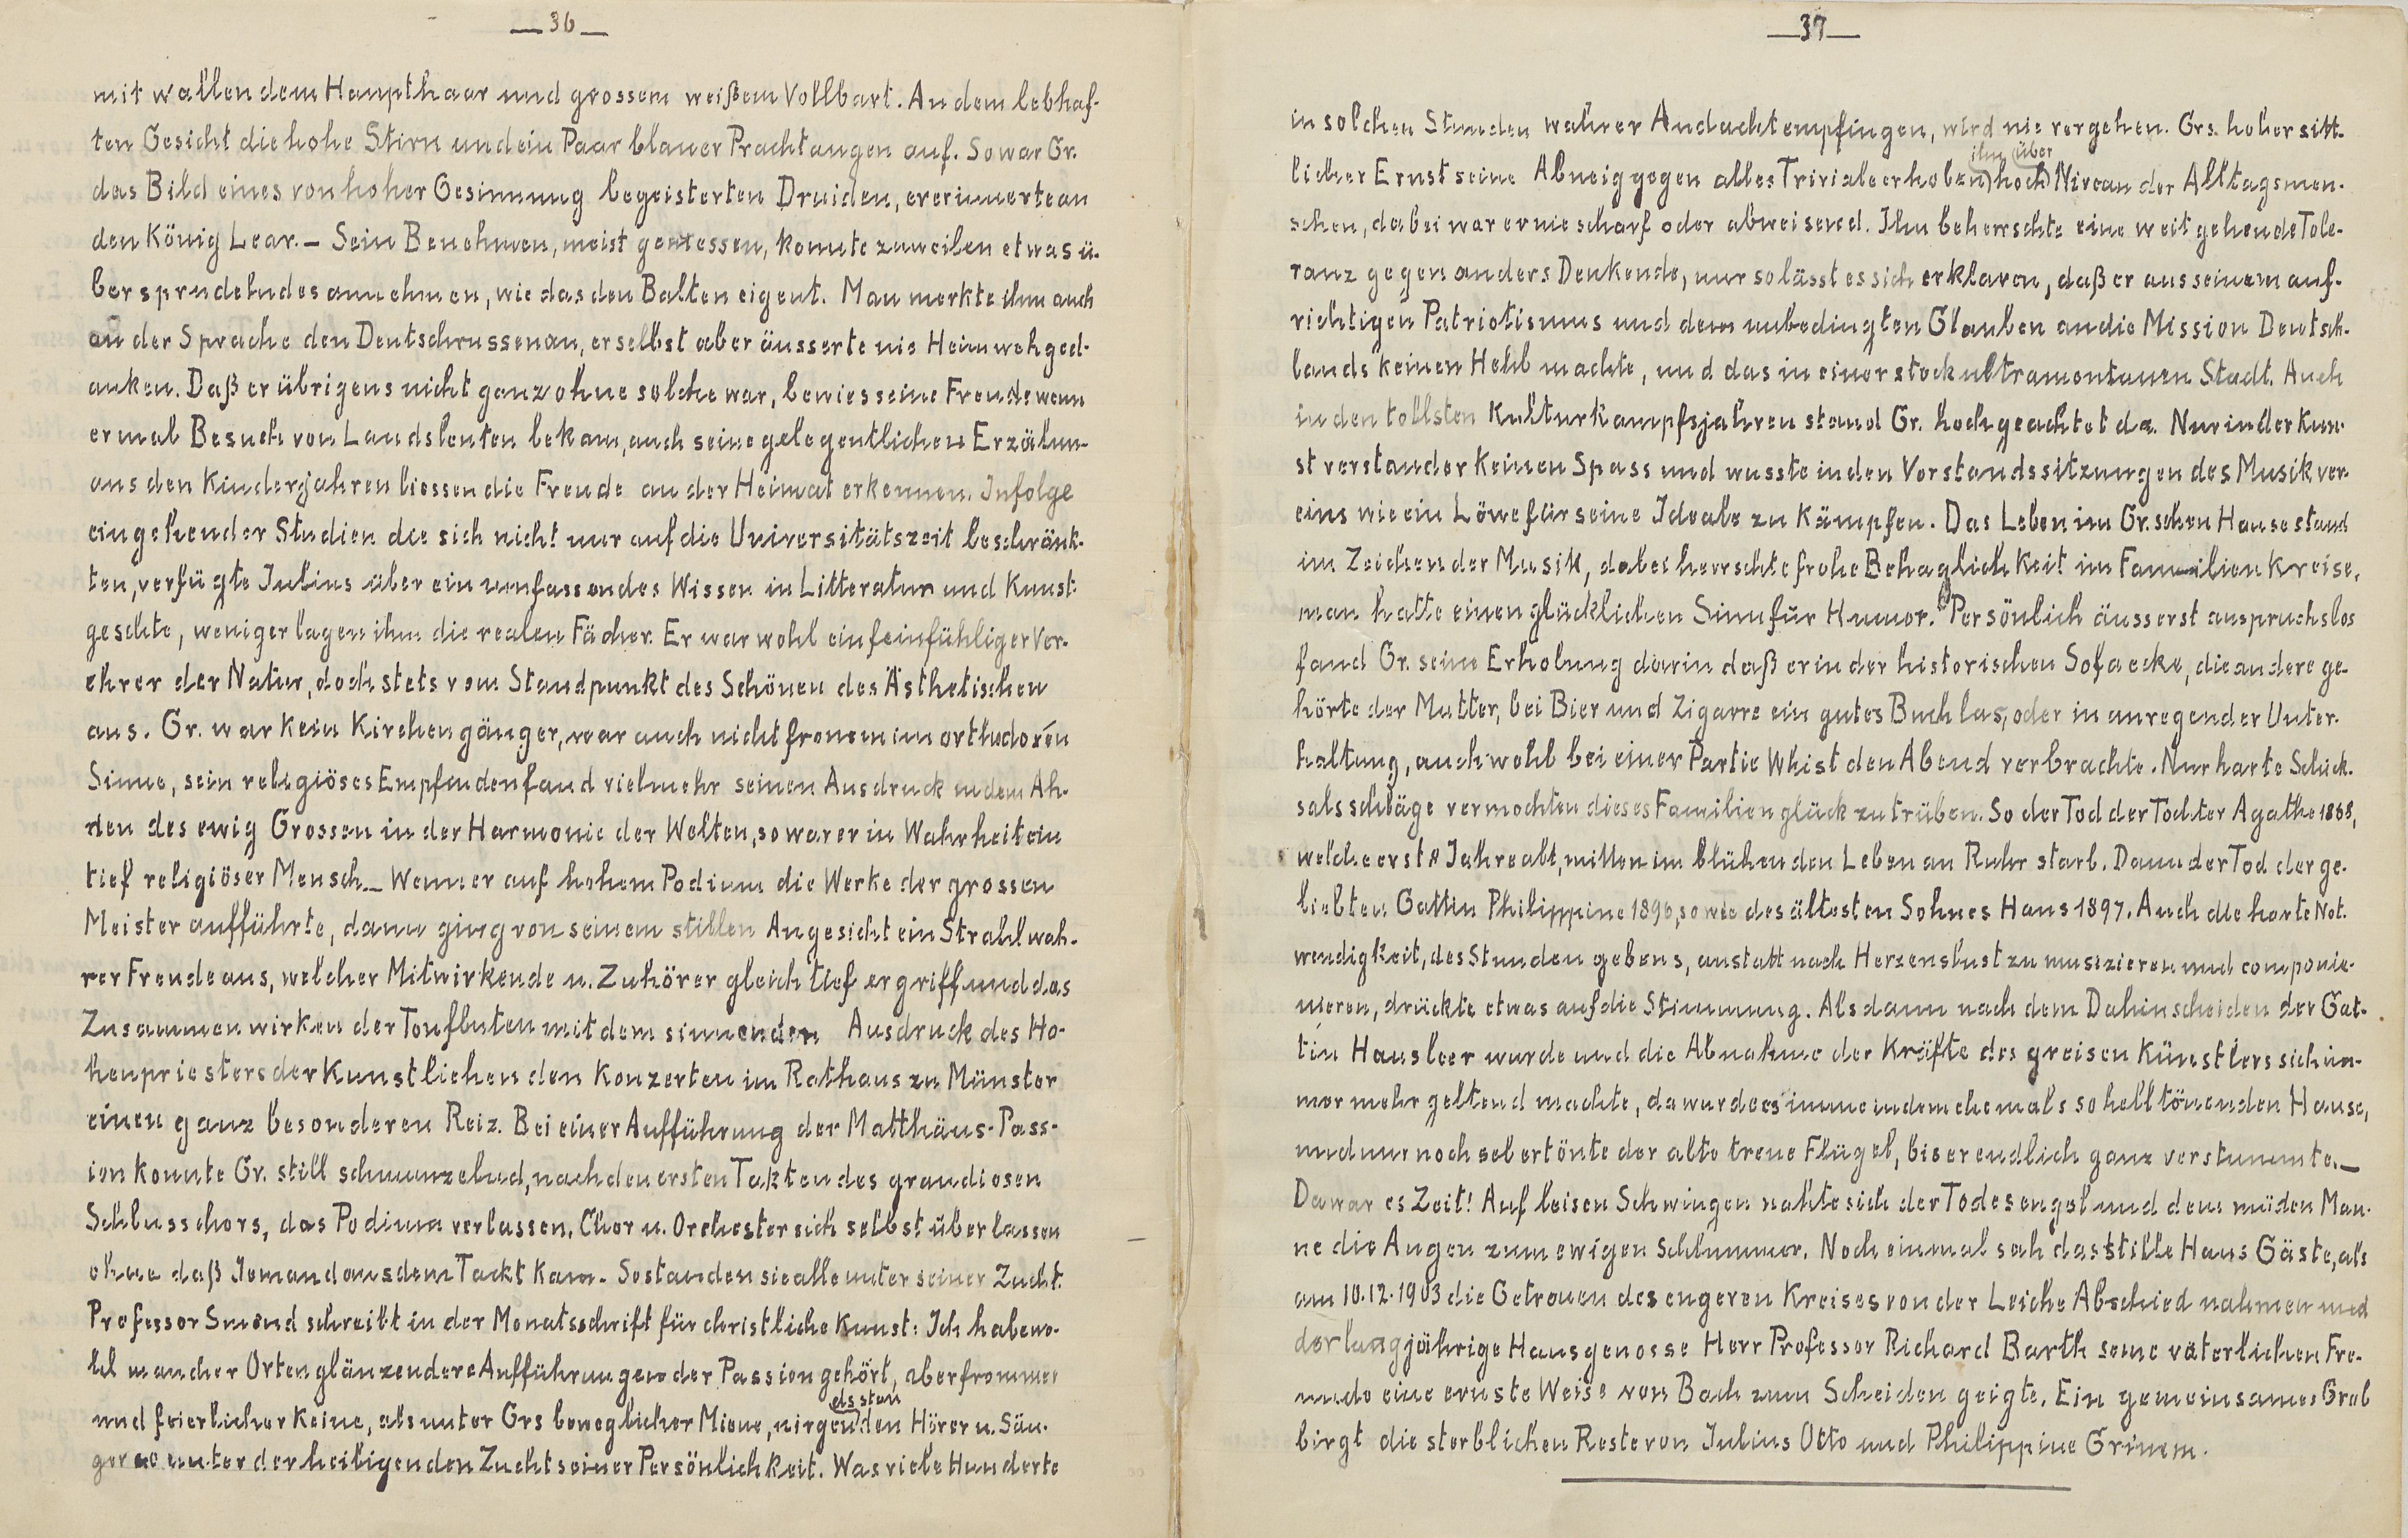 — 36 —
mit wallendem Haupthaar und grossem weißem Vollbart. An dem lebhaf-
ten Gesicht die hohe Stirn und ein Paar blauer Prachtaugen auf. So war Gr.
das Bild eines von hoher Gesinnung begeisterten Druiden, er erinnerte an
den König Lear. – Sein Benehmen, meist gemessen, konnte zuweilen etwas ü-
bersprudelndes annehmen, wie das den Balten eigent. Man merkte ihm auch
an der Sprache den Deutschrussen an, er selbst aber äusserte nie Heimwehged-
anken. Daß er übrigens nicht ganz ohne solche war, bewies seine Freude wenn
er mal Besuch von Landsleuten bekam, auch seine gelegentlichen Erzälun-
aus den Kinderjahren liessen die Freude an der Heimat erkennen. Infolge
eingehender Studien die sich nicht nur auf die Universitätszeit beschränk-
ten, verfügte Julius über ein umfassendes Wissen in Litteratur und Kunst-
geschte, weniger lagen ihm die realen Fächer. Er war wohl ein feinfühliger Ver-
ehrer der Natur, doch stets vom Standpunkt des Schönen des Ästhetischen
aus. Gr. war kein Kirchengänger, war auch nicht fromm im orthodoxén
Sinne, sein religiöses Empfinden fand vielmehr seinen Ausdruck in dem Ah-
nen des ewig Grossen in der Harmonie der Welten, so war er in Wahrheit ein
tief religiöser Mensch. – Wenn er auf hohem Podium die Werke der grossen
Meister aufführte, dann ging von seinem stillen Angesicht ein Strahl wah-
rer Freude aus, welcher Mitwirkende u. Zuhörer gleich tief ergriff und das
Zusammenwirken der Tonfluten mit dem sinnenden Ausdruck des Ho-
henpriesters der Kunst liehen den Konzerten im Rathaus zu Münster
einen ganz besonderen Reiz. Bei einer Aufführung der Matthäus-Pass-
ion konnte Gr. still schmunzelnd, nach den ersten Takten des grandiosen
Schlusschors, das Podium verlassen, Chor u. Orchester sich selbst überlassen
ohne daß Jemand aus dem Tackt kam. So standen sie alle unter seiner Zucht.
Professor Smend schreibt in der Monatsschrift für christliche Kunst: Ich habe wo-
hl mancher Orten glänzendere Aufführungen der Passion gehört, aber frommer
und feierlicher keine, als unter Grs beweglicher Miene, nirgends stan den Hörer u. Sän-
ger so unter der heiligenden Zucht seiner Persönlichkeit. Was viele Hunderte
— 37 —
in solchen Stunden wahrer Andacht empfingen, wird nie vergehen. Grs. hoher sitt-
licher Ernst seine Abneig gegen alles Triviale erhoben ihn hoch über Niveau der Alltagsmen-
schen, dabei war er nie scharf oder abweisend. Ihn beherrschte eine weit gehende Tole-
ranz gegen anders Denkende, nur so lässt es sich erklaren, daß er aus seinem auf-
richtigen Patriotismus und dem unbedingten Glauben an die Mission Deutsch-
lands keinen Hehl machte, und das in einer stockultramontanen Stadt. Auch
in den tollsten Kulturkampfsjahren stand Gr. hochgeachtet da. Nur in der Kun-
st verstand er keinen Spass und wusste in den Vorstandssitzungen des Musikver-
eins wie ein Löwe für seine Ideale zu kämpfen. Das Leben im Gr.schen Hause stand
im Zeichen der Musik, dabei herrschte frohe Behaglichkeit im Familienkreise,
man hatte einen glücklichen Sinn für Humor. Persönlich äusserst anspruchslos
fand Gr. seine Erholung darin daß er in der historischen Sofaecke, die andere ge-
hörte der Mutter, bei Bier und Zigarre ein gutes Buch las, oder in anregender Unter-
haltung, auch wohl bei einer Partie Whist den Abend verbrachte. Nur harte Schick-
salsschläge vermochten dieses Familienglück zu trüben. So der Tod der Tochter Agathe 1868,
welche erst 8 Jahre alt, mitten im blühenden Leben an Ruhr starb. Dann der Tod der ge-
liebten Gattin Philippine 1896, sowie des ältesten Sohnes Hans 1897. Auch die harte Not-
wendigkeit, des Stundengebens, anstatt nach Herzenslust zu musizieren und componie-
nieren, drückte etwas auf die Stimmung. Als dann nach dem Dahinscheiden der Gat-
tin Haus leer wurde und die Abnahme der Kräfte des greisen Künstlers sich im-
mer mehr geltend machte, da wurde es imme in dem ehemals so helltönenden Hause,
und nur noch sel ertönte der alte treue Flügel, bis er endlich ganz verstummte. –
Da war es Zeit! Auf leisen Schwingen nahte sich der Todesengel und dem müden Man-
ne die Augen zum ewigen Schlummer. Noch einmal sah das stille Haus Gäste, als
am 10.12.1903 die Getreuen des engeren Kreises von der Leiche Abschied nahmen und
der langjährige Hausgenosse Herr Professor Richard Barth seine väterlichen Fre-
unde eine ernste Weise von Bach zum Scheiden geigte. Ein gemeinsames Grab
birgt die sterblichen Reste von Julius Otto und Philippine Grimm.